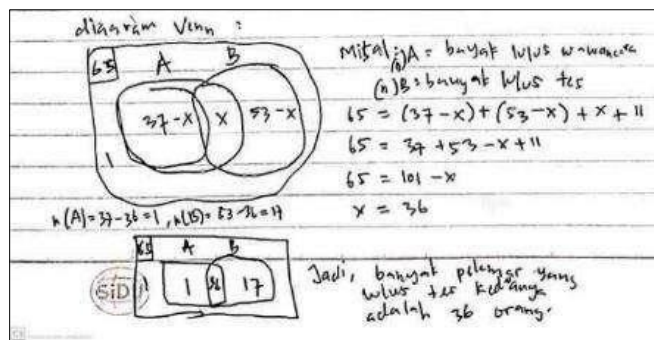 diagram Venn :
65 A B
37-x x 53-x
1
n(A)=37-36=1, n(B)=53-36=17
65 A B
1 36 17
SiD
Misal : (n)A = banyak lulus wawancara
(n)B = banyak lulus tes
65 = (37-x)+(53-x)+x+11
65 = 37+53-x+11
65 = 101-x
x = 36
Jadi, banyak pelamar yang
lulus tes keduanya
adalah 36 orang.